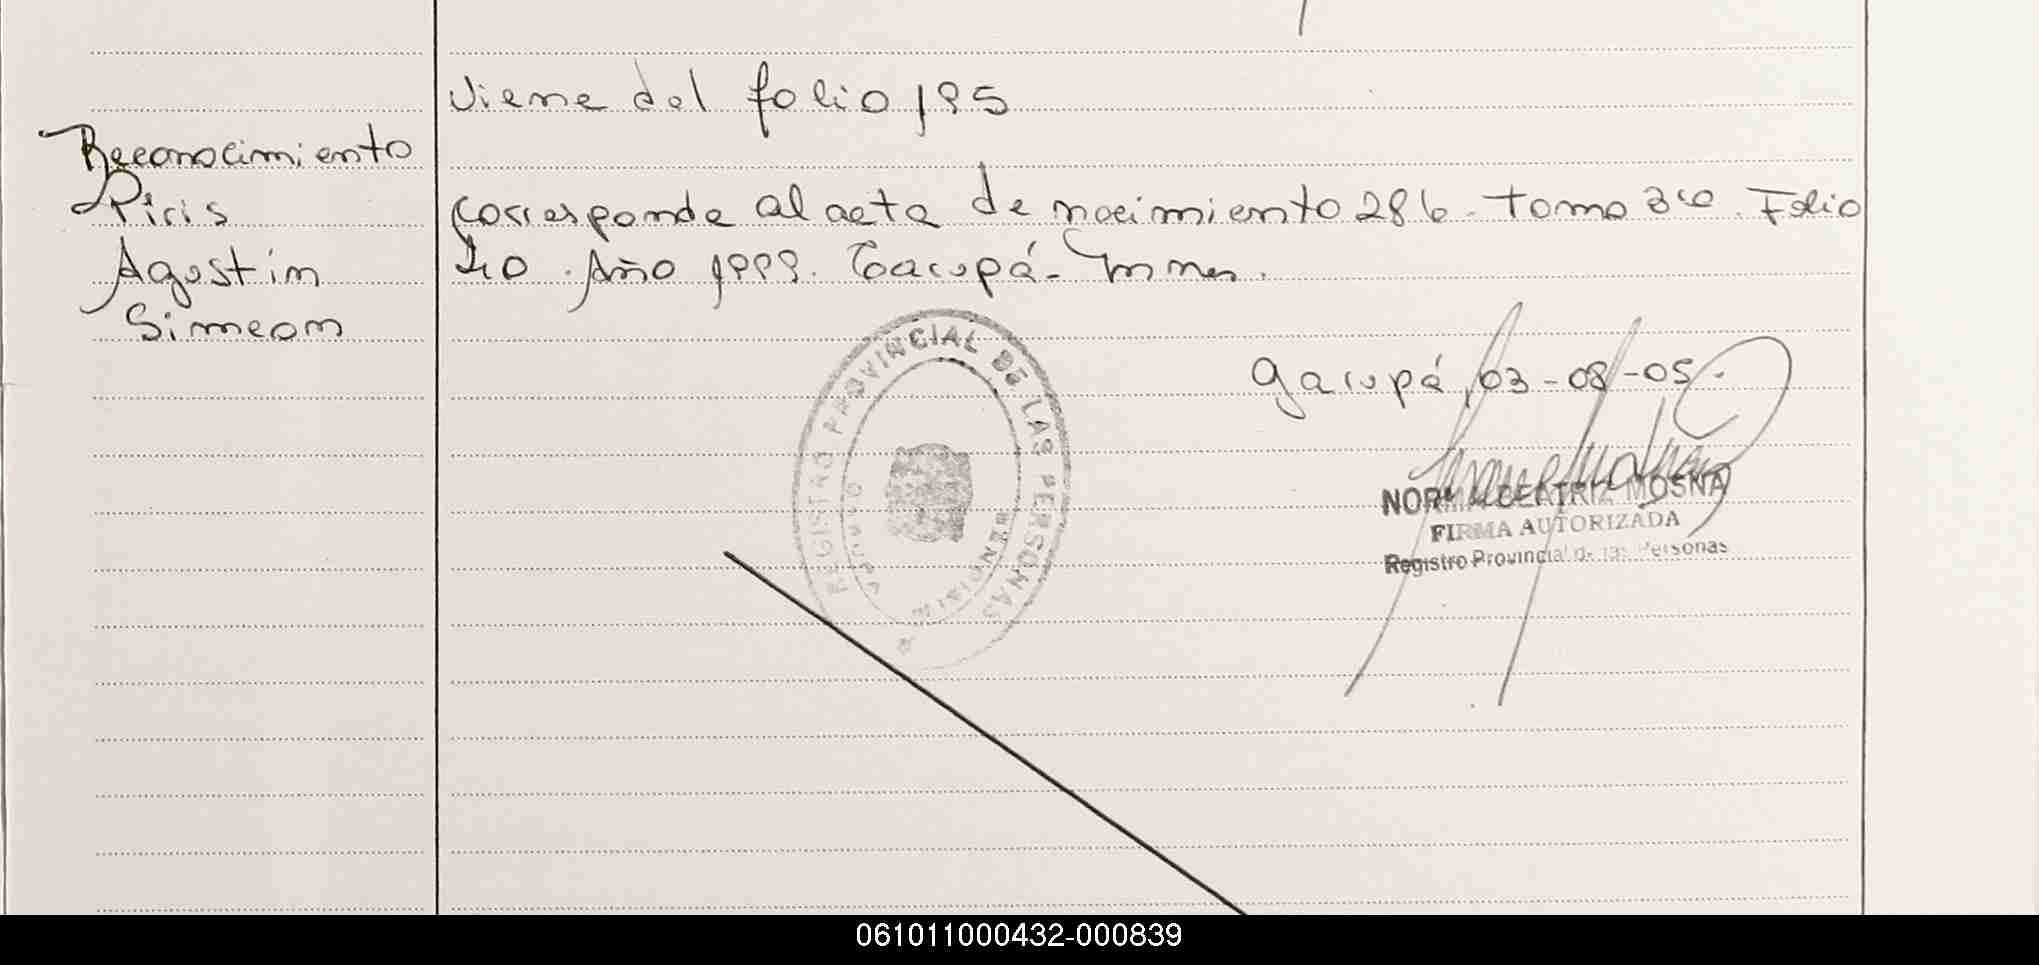 Viene del folio 195
Reconocimiento
Piris
Agostin
Simeon
Corresponde al acta de nacimiento 286. Tomo 3ro. Folio
40. Año 1999. Garupá - Mnes.
REGISTRO PROVINCIAL DE LAS PERSONAS
Garupá, 03-08-05.
NORMA BEATRIZ MOSNA
FIRMA AUTORIZADA
Registro Provincial de las Personas
061011000432-000839